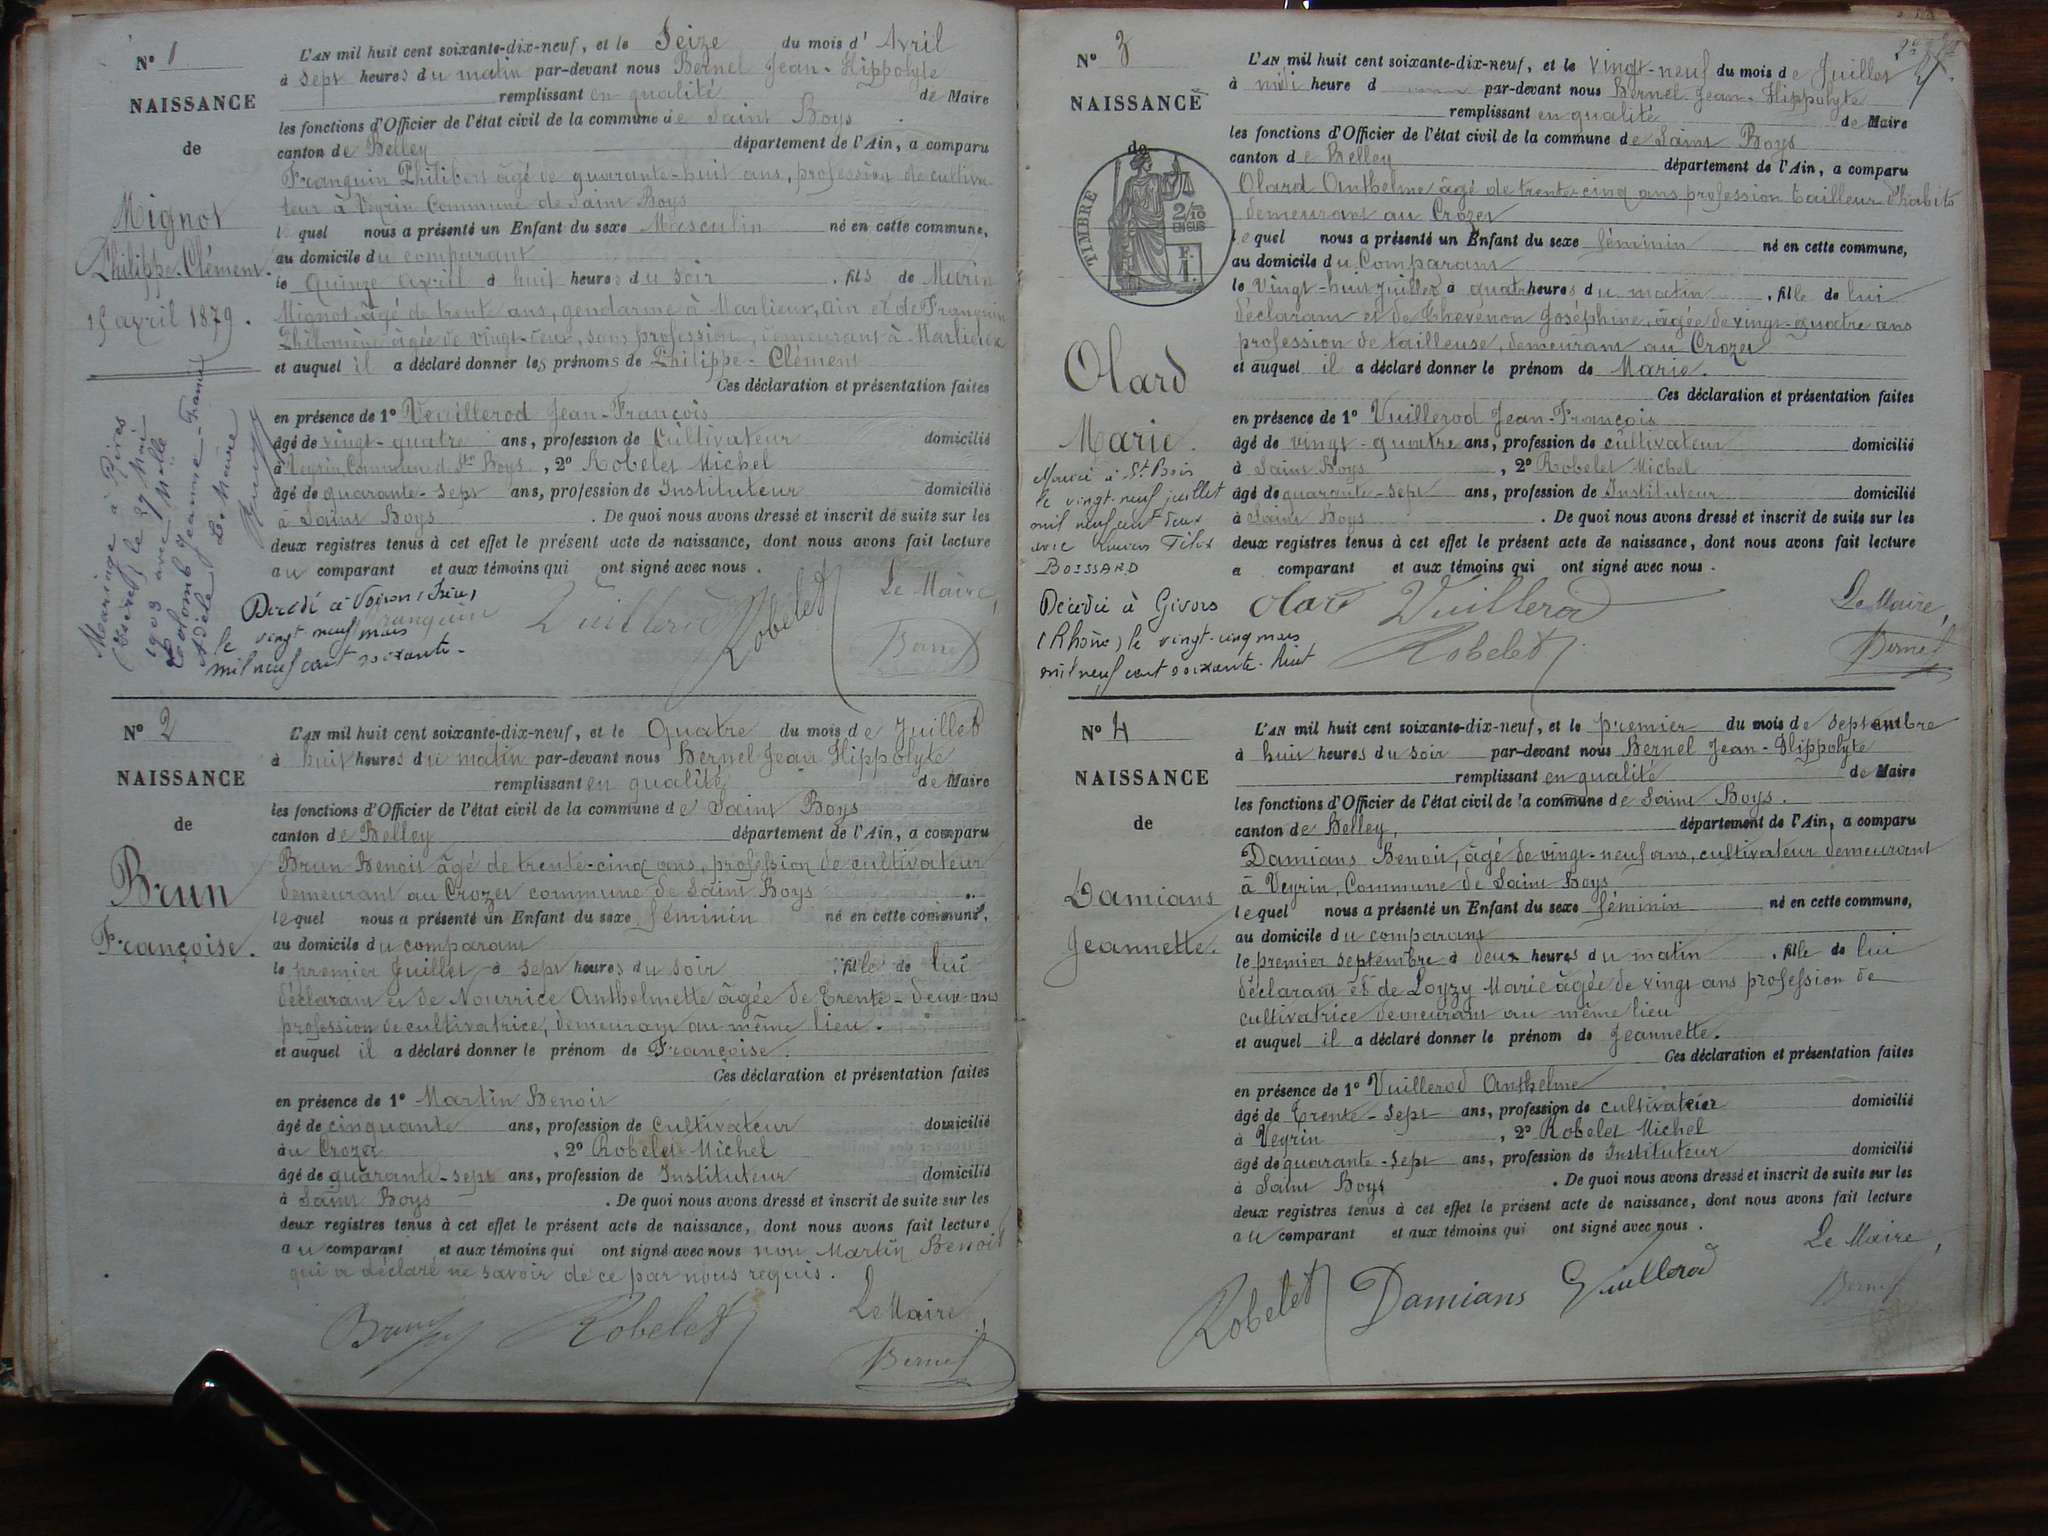 N° 1
NAISSANCE
de
Mignot
Philippe-Clément.
15 avril 1879.
Mariage à Rives
(Isère) le 27 Mai
1903 avec Melle
Colomb Jeanne-Francse
Adèle
Le Maire
L'AN mil huit cent soixante-dix-neuf, et le Seize du mois d'Avril
à sept heures du matin par-devant nous Bernel Jean-Hippolyte
remplissant en qualité de Maire
les fonctions d'Officier de l'état civil de la commune de Saint Boys
canton de Belley département de l'Ain, a comparu
Franquin Philibert âgé de quarante-huit ans, profession de cultiva-
teur à Veyrin Commune de Saint Boys
lequel nous a présenté un Enfant du sexe Masculin né en cette commune,
au domicile du comparant
le Quinze avril à huit heures du soir, fils de Marin
Mignot âgé de trente ans, gendarme à Marlieux, Ain et de Franquin
Philomène âgée de vingt-deux, sans profession, demeurant à Marlieux
et auquel il a déclaré donner les prénoms de Philippe-Clément
Ces déclaration et présentation faites
en présence de 1° Vuillerod Jean-François
âgé de vingt-quatre ans, profession de Cultivateur domicilié
à Veyrin Commune d. St Boys, 2° Robelet Michel
âgé de quarante-sept ans, profession de Instituteur domicilié
à Saint Boys. De quoi nous avons dressé et inscrit de suite sur les
deux registres tenus à cet effet le présent acte de naissance, dont nous avons fait lecture
au comparant et aux témoins qui ont signé avec nous.
Le Maire,
Décédé à Voiron (Isère)
le vingt neuf mars
mil neuf cent soixante.
Franquin Vuillerod Robelet Bernel
N° 2
NAISSANCE
de
Brun
Françoise.
L'AN mil huit cent soixante-dix-neuf, et le Quatre du mois de Juillet
à huit heures du matin par-devant nous Bernel Jean Hippolyte
remplissant en qualité de Maire
les fonctions d'Officier de l'état civil de la commune de Saint Boys
canton de Belley département de l'Ain, a comparu
Brun Benoit âgé de trente-cinq ans, profession de cultivateur
demeurant au Crozet commune de Saint Boys
lequel nous a présenté un Enfant du sexe féminin né en cette commune,
au domicile du comparant
le premier Juillet à sept heures du soir, fille de lui
déclarant et de Nourrice Anthelmette âgée de Trente-deux ans
profession de cultivatrice, demeurant au même lieu.
et auquel il a déclaré donner le prénom de Françoise.
Ces déclaration et présentation faites
en présence de 1° Martin Benoit
âgé de cinquante ans, profession de Cultivateur domicilié
au Crozet, 2° Robelet Michel
âgé de quarante-sept ans, profession de Instituteur domicilié
à Saint Boys. De quoi nous avons dressé et inscrit de suite sur les
deux registres tenus à cet effet le présent acte de naissance, dont nous avons fait lecture
au comparant et aux témoins qui ont signé avec nous non Martin Benoit
qui a déclaré ne savoir de ce par nous requis.
Le Maire,
Brun Robelet Bernel
N° 3
NAISSANCE
de
TIMBRE
2/10
EN SUS
Olard
Marie.
Mariée à St Bois
le vingt-neuf juillet
mil neuf cent deux
avec Lucien Félix
BOISSARD
Décédée à Givors
(Rhône) le vingt-cinq mars
mil neuf cent soixante-huit
L'AN mil huit cent soixante-dix-neuf, et le vingt-neuf du mois de Juillet
à midi heure d par-devant nous Bernel Jean-Hippolyte
remplissant en qualité de Maire
les fonctions d'Officier de l'état civil de la commune de Saint Boys
canton de Belley département de l'Ain, a comparu
Olard Anthelme âgé de trente-cinq ans profession tailleur d'habits
demeurant au Crozet
lequel nous a présenté un Enfant du sexe féminin né en cette commune,
au domicile du Comparant
le Vingt-huit Juillet à quatre heures du matin, fille de lui
déclarant et de Thévenon Joséphine, âgée de vingt-quatre ans
profession de tailleuse, demeurant au Crozet
et auquel il a déclaré donner le prénom de Marie.
Ces déclaration et présentation faites
en présence de 1° Vuillerod Jean-François
âgé de vingt-quatre ans, profession de cultivateur domicilié
à Saint Boys, 2° Robelet Michel
âgé de quarante-sept ans, profession de Instituteur domicilié
à Saint Boys. De quoi nous avons dressé et inscrit de suite sur les
deux registres tenus à cet effet le présent acte de naissance, dont nous avons fait lecture
a comparant et aux témoins qui ont signé avec nous.
Le Maire,
Olard Vuillerod
Robelet Bernel
N° 4
NAISSANCE
de
Damians
Jeannette.
L'AN mil huit cent soixante-dix-neuf, et le premier du mois de septembre
à huit heures du soir par-devant nous Bernel Jean-Hippolyte
remplissant en qualité de Maire
les fonctions d'Officier de l'état civil de la commune de Saint Boys.
canton de Belley, département de l'Ain, a comparu
Damians Benoit, âgé de vingt-neuf ans, cultivateur demeurant
à Veyrin, Commune de Saint Boys
lequel nous a présenté un Enfant du sexe féminin né en cette commune,
au domicile du comparant
le premier septembre à deux heures du matin, fille de lui
déclarant et de Loyzy Marie âgée de vingt ans profession de
cultivatrice demeurant au même lieu
et auquel il a déclaré donner le prénom de Jeannette.
Ces déclaration et présentation faites
en présence de 1° Vuillerod Anthelme
âgé de Trente-sept ans, profession de cultivateur domicilié
à Veyrin, 2° Robelet Michel
âgé de quarante-sept ans, profession de Instituteur domicilié
à Saint Boys. De quoi nous avons dressé et inscrit de suite sur les
deux registres tenus à cet effet le présent acte de naissance, dont nous avons fait lecture
au comparant et aux témoins qui ont signé avec nous.
Le Maire,
Robelet Damians Vuillerod Bernel